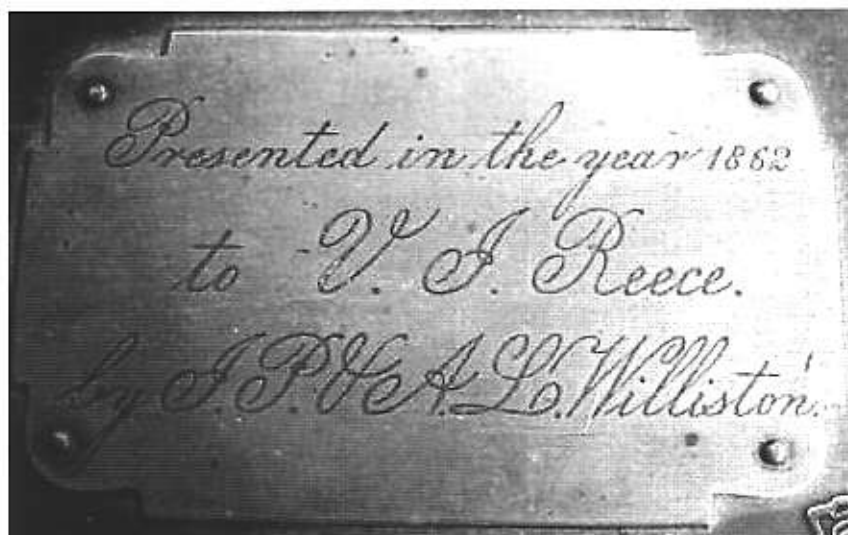 Presented in the year 1862
to V. I. Reece.
by J. P. & A. L. Williston.